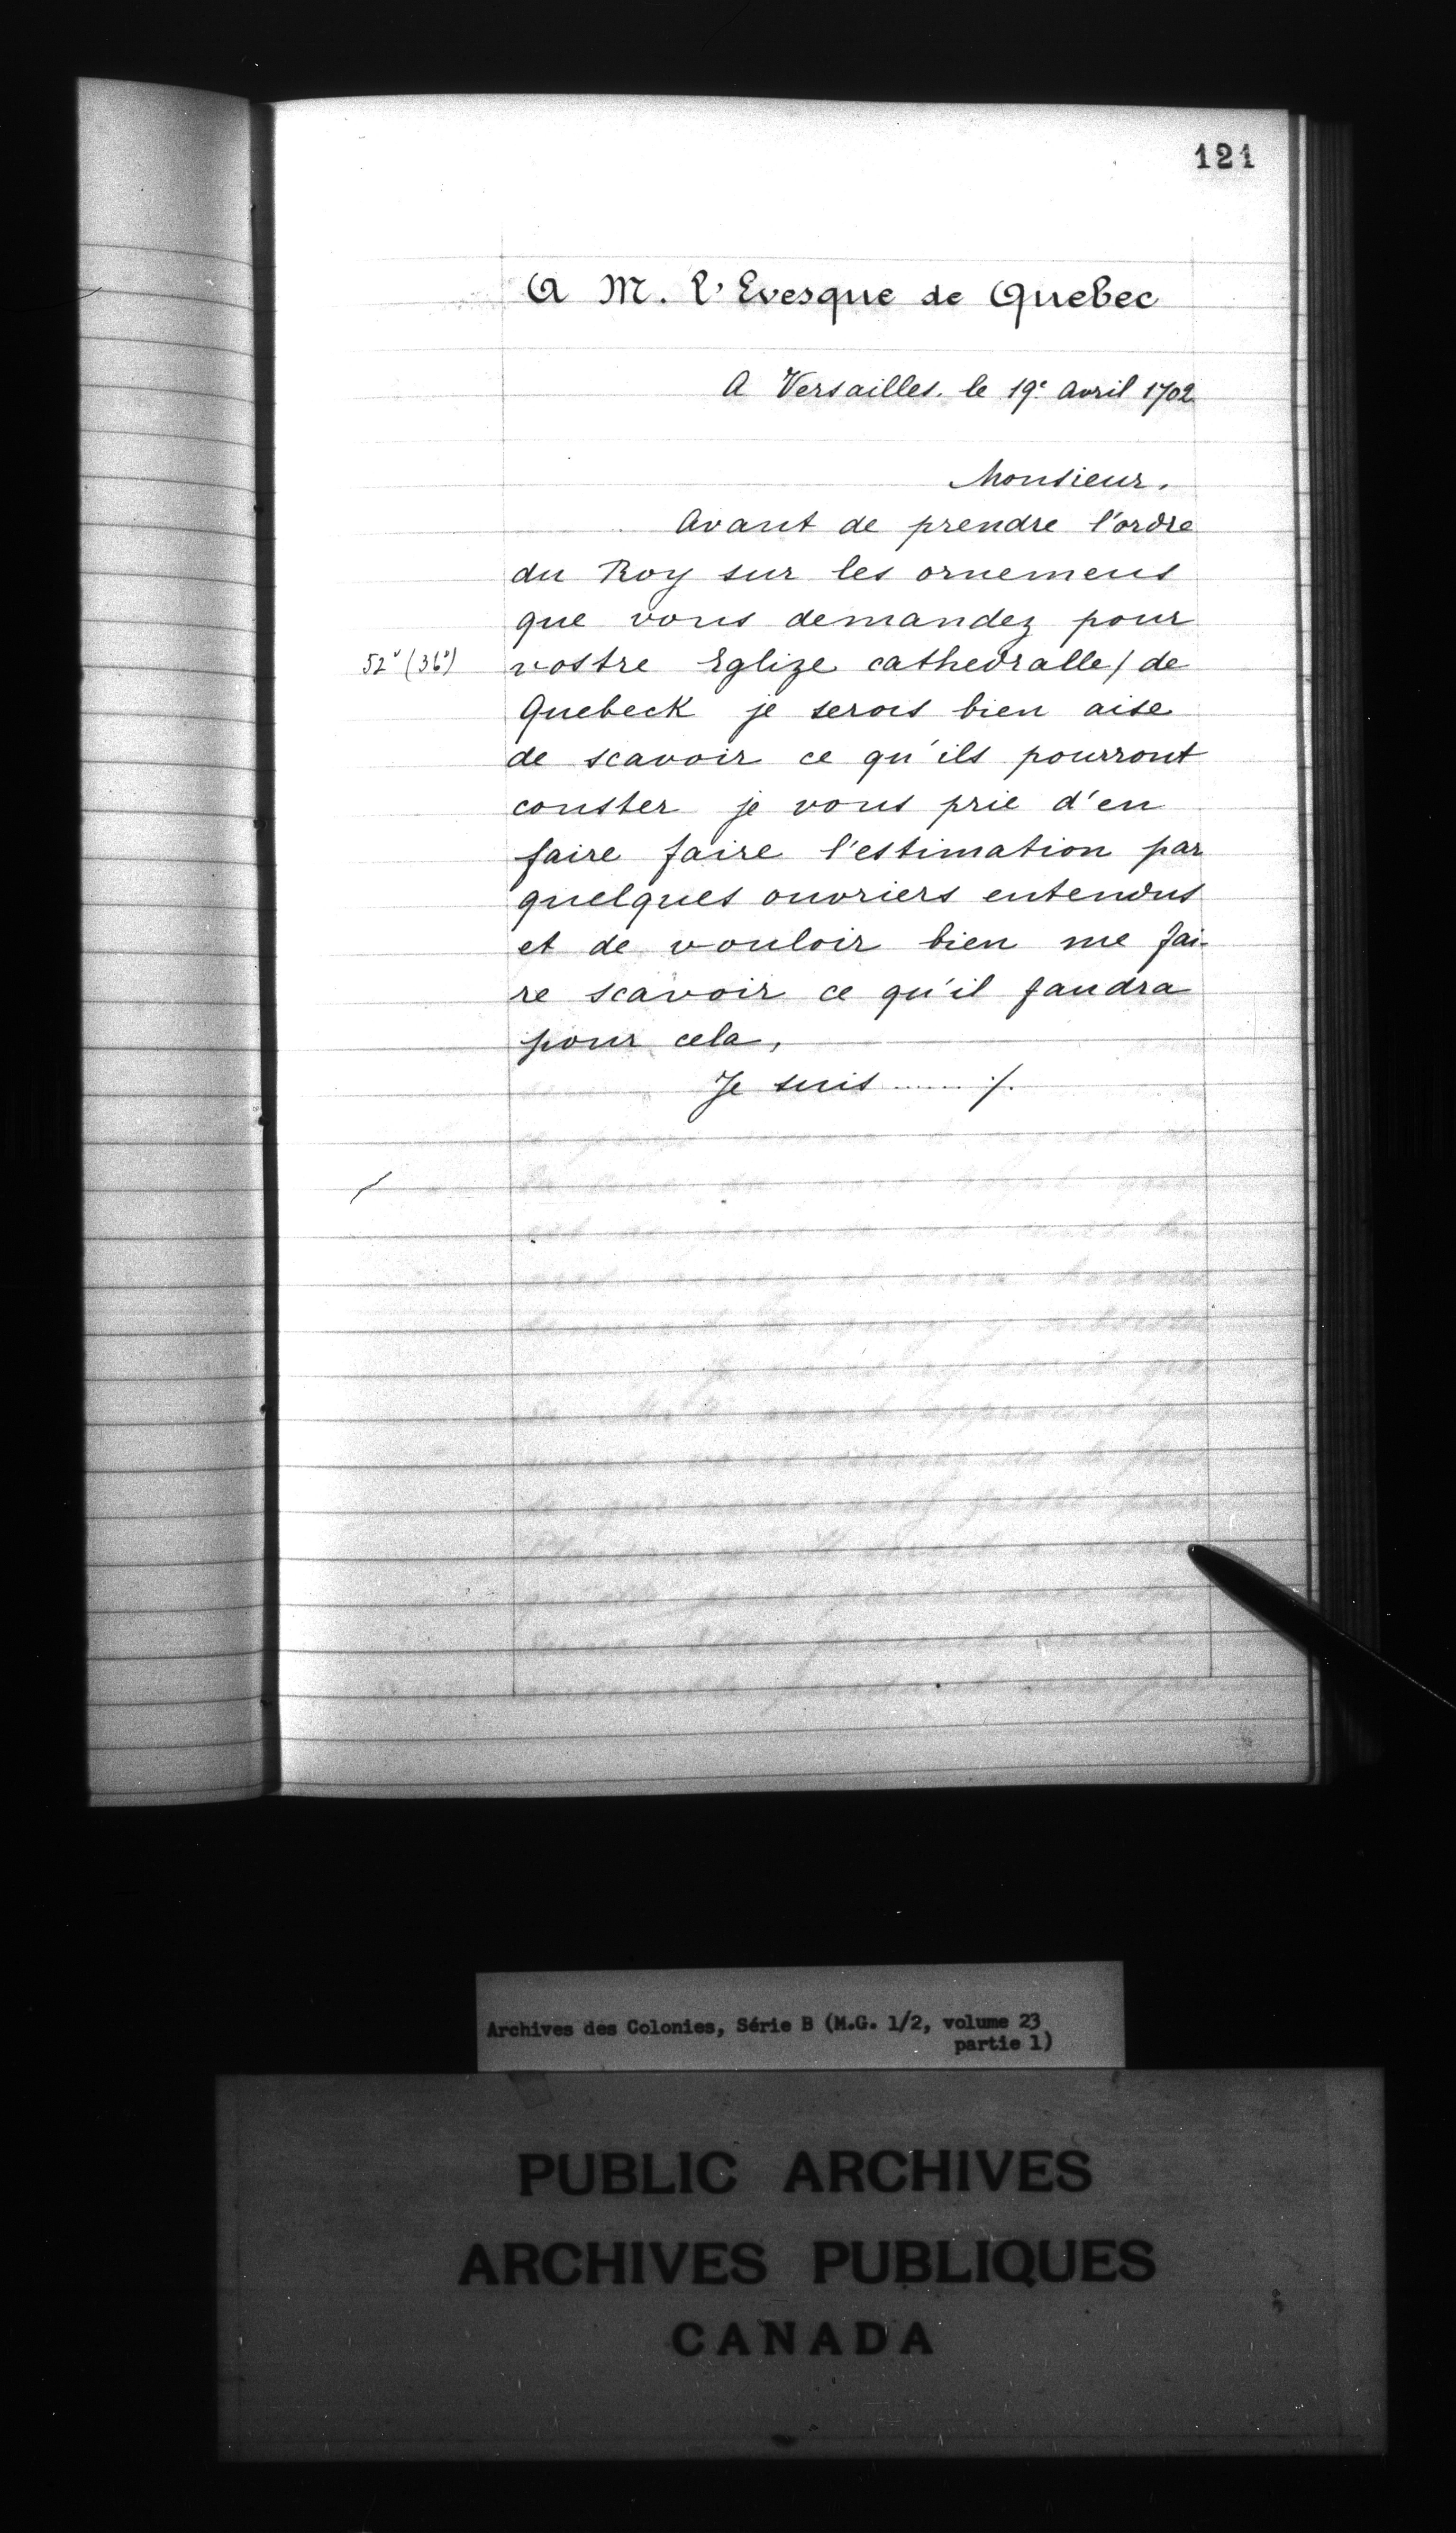 121
A M. l'Evesque de Quebec
A Versailles. le 19e Avril 1702
Monsieur.
Avant de prendre l'ordre
du Roy sur les ornemens
que vous demandez pour
52v (36v) vostre Eglize cathedralle / de
Quebeck je serois bien aise
de scavoir ce qu'ils pourront
couster je vous prie d'en
faire faire l'estimation par
quelques ouvriers entendus
et de vouloir bien me fai-
re scavoir ce qu'il faudra
pour cela,
Je suis ....... ./.
Archives des Colonies, Série B (M.G. 1/2, volume 23
partie 1)
PUBLIC ARCHIVES
ARCHIVES PUBLIQUES
CANADA